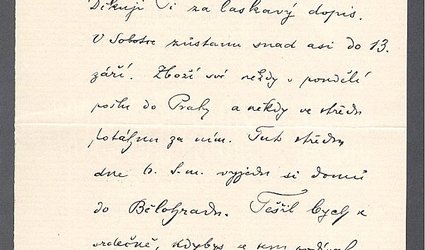 Děkuji Ti za laskavý dopis.
V Sobotce zůstanu snad asi do 13.
září. Zboží své někdy v pondělí
pošlu do Prahy a někdy ve středu
potáhnu za ním. Tuto středu
dne 6. t.m. vyjedu si domů
do Bělohradu. Těšil bych se
srdečně, kdybys a tam